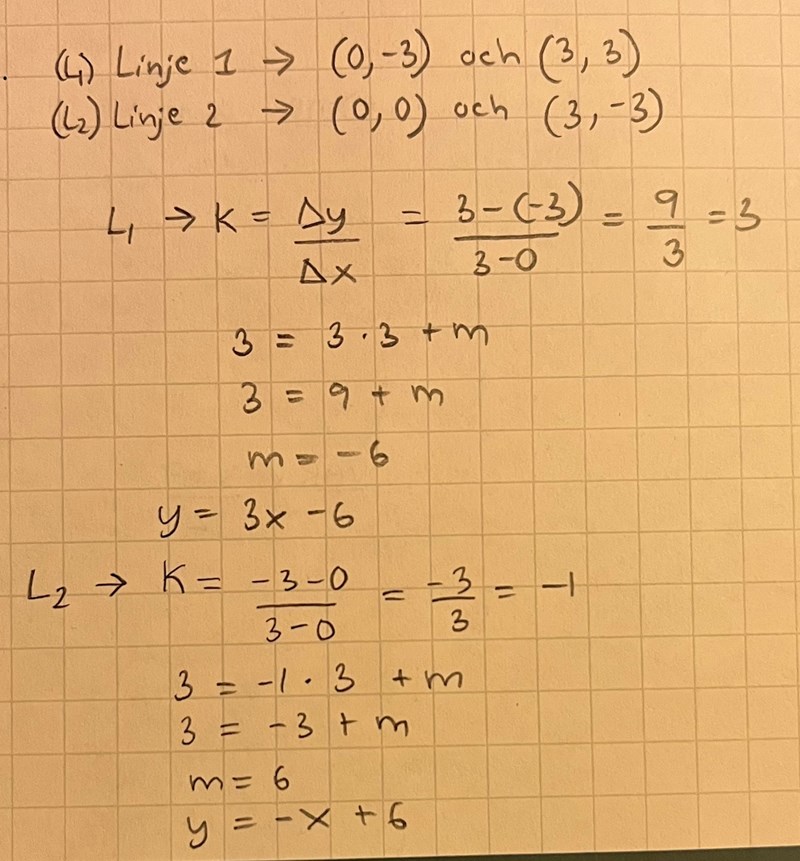 (L1) Linje 1 → (0,-3) och (3, 3)
(L2) Linje 2 → (0,0) och (3,-3)
L1 → K = Δy/Δx = 3-(-3)/3-0 = 9/3 = 3
3 = 3·3 + m
3 = 9 + m
m = -6
y = 3x - 6
L2 → K = -3-0/3-0 = -3/3 = -1
3 = -1·3 + m
3 = -3 + m
m = 6
y = -x + 6